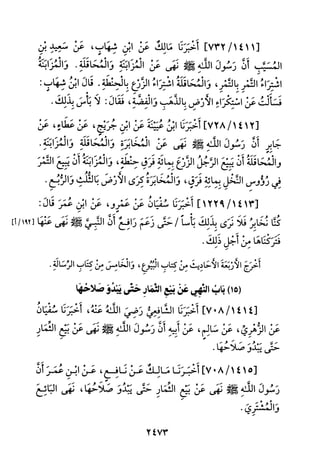 [٧٣٢/١٤١١] أَخْبَرَنَا مَالِكٌ عَنْ ابْنِ شِهَابٍ، عَنْ سَعِيدِ بْنِ
المُسَيَّبِ أَنَّ رَسُولَ اللَّهِ ﷺ نَهَى عَنْ المُزَابَنَةِ وَالْمُحَاقَلَةِ. وَالْمُزَابَنَةُ
اشْتِرَاءُ التَّمْرِ بِالتَّمْرِ، وَالْمُحَاقَلَةُ اشْتِرَاءُ الزَّرْعِ بِالْحِنْطَةِ. قَالَ ابْنُ شِهَابٍ:
فَسَأَلْتُ عَنْ اسْتِكْرَاءِ الأَرْضِ بِالذَّهَبِ وَالْفِضَّةِ، فَقَالَ: لاَ بَأْسَ بِذَلِكَ.
[٧٢٨/١٤١٢] أَخْبَرَنَا ابْنُ عُيَيْنَةَ عَنْ ابْنِ جُرَيْجٍ، عَنْ عَطَاءٍ، عَنْ
جَابِرٍ أَنَّ رَسُولَ اللَّهِ ﷺ نَهَى عَنْ المُخَابَرَةِ وَالْمُحَاقَلَةِ وَالْمُزَابَنَةِ.
والمُحَاقَلَةُ أَنْ يَبِيعَ الرَّجُلُ الزَّرْعَ بِمِائَةِ فَرَقِ حِنْطَةٍ، وَالْمُزَابَنَةُ أَنْ يَبِيعَ التَّمْرَ
فِي رُؤُوسِ النَّخْلِ بِمِائَةِ فَرَقٍ، وَالْمُخَابَرَةُ كِرَى الأَرْضَ بَالثُّلُثِ وَالرُّبُعِ.
[١٢٢٩/١٤١٣] أَخْبَرَنَا سُفْيَانُ عَنْ عَمْرٍو، عَنْ ابْنِ عُمَرَ قَالَ:
كُنَّا نُخَابِرُ فَلاَ نَرَى بِذَلِكَ بَأْساً / حَتَّى زَعَمَ رَافِعٌ أَنَّ النَّبِيَّ ﷺ نَهَى عَنْهَا [١٩٢/أ]
فَتَرَكْنَاهَا مِنْ أَجْلِ ذَلِكَ.
أَخْرَجَ الأَرْبَعَةَ الأَحَادِيثَ مِنْ كِتابِ الْبُيُوعِ، وَالْخَامِسَ مِنْ كِتَابِ الرِّسَالَةِ.
(١٥) بَابُ النَّهِي عَنْ بَيْعِ الثِّمَارِ حَتَّى يَبْدُوَ صَلاَحُهَا
[٧٠٨/١٤١٤] أَخْبَرَنَا الشَّافِعِيُّ رَضِيَ اللَّهُ عَنْهُ، أَخْبَرَنَا سُفْيَانُ
عَنْ الزُّهْرِيِّ، عَنْ سَالِمٍ، عَنْ أَبِيهِ أَنَّ رَسُولَ اللَّهِ ﷺ نَهَى عَنْ بَيْعِ الثِّمَارِ
حَتَّى يَبْدُوَ صَلاَحُهَا.
[٧٠٨/١٤١٥] أَخْبَرَنَا مَالِكٌ عَنْ نَافِعٍ، عَنْ ابْنِ عُمَرَ أَنَّ
رَسُولَ اللَّهِ ﷺ نَهَى عَنْ بَيْعِ الثِّمَارِ حَتَّى يَبْدُوَ صَلاَحُهَا، نَهَى البَائِعَ
وَالْمُشْتَرِي.
٢٤٧٣